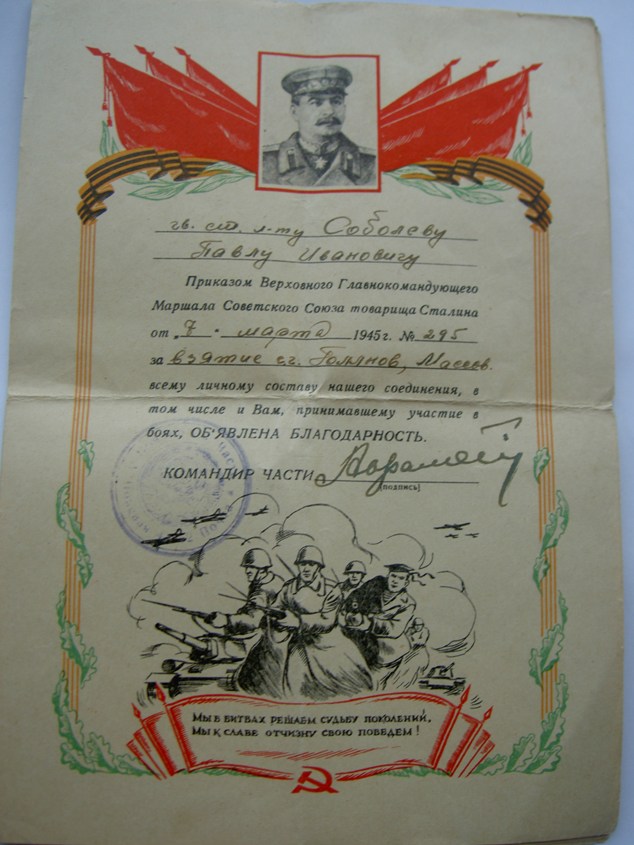 гв. ст. л-ту Соболеву
Павлу Ивановичу
Приказом Верховного Главнокомандующего
Маршала Советского Союза товарища Сталина
от „7" марта 1945 г. № 295
за взятие г.г. Гольнов, Массов.
всему личному составу нашего соединения, в
том числе и Вам, принимавшему участие в
боях, ОБ'ЯВЛЕНА БЛАГОДАРНОСТЬ.
КОМАНДИР ЧАСТИ
(подпись)
МЫ В БИТВАХ РЕШАЕМ СУДЬБУ ПОКОЛЕНИЙ,
МЫ К СЛАВЕ ОТЧИЗНУ СВОЮ ПОВЕДЕМ!